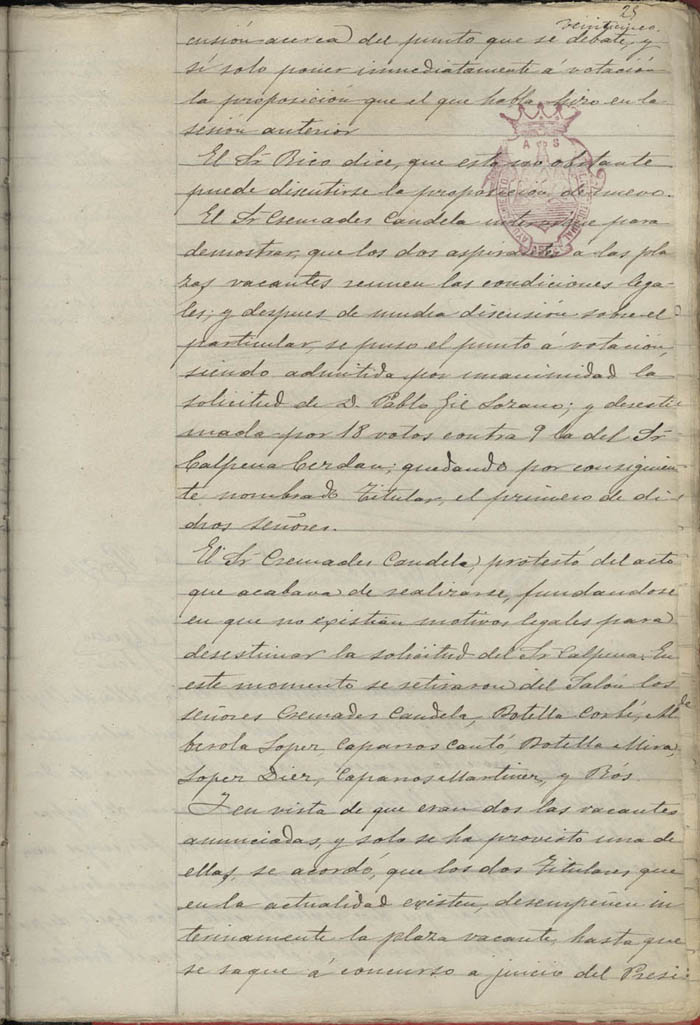 25
veinticinco.
cusión acerca del punto que se debate, y
sí solo poner inmediatamente á votación
la proposición que el que habla hizo en la
sesión anterior
El Sr Rico dice, que esto no obstante
puede discutirse la proposición de nuevo.
El Sr Cremades Candela interviene para
demostrar, que los dos aspirantes a las pla
zas vacantes reunen las condiciones lega-
les; y despues de mucha discusión sobre el
particular, se puso el punto á votación,
siendo admitida por unanimidad la
solicitud de D. Pablo Gil Lozano; y desesti
mada por 18 votos contra 9 la del Sr
Calpena Cerdan; quedando por consiguien
te nombrado Titular, el primero de di-
chos señores.
El Sr Cremades Candela, protestó del acto
que acabava de realizarse, fundandose
en que no existian motivos legales para
desestimar la solicitud del Sr Calpena. En
este momento se retiraron del Salón los
señores Cremades Candela, Botella Corbí, Al
berola Loper, Caparros Cantó, Botella Mira,
Loper Dier, Caparros Martiner, y Rós
I en vista de que eran dos las vacantes
anunciadas, y solo se ha provisto una de
ellas, se acordó, que los dos Titulares que
en la actualidad existen, desempeñen in
terinamente la plaza vacante, hasta que
se saque á concurso a juicio del Presi-